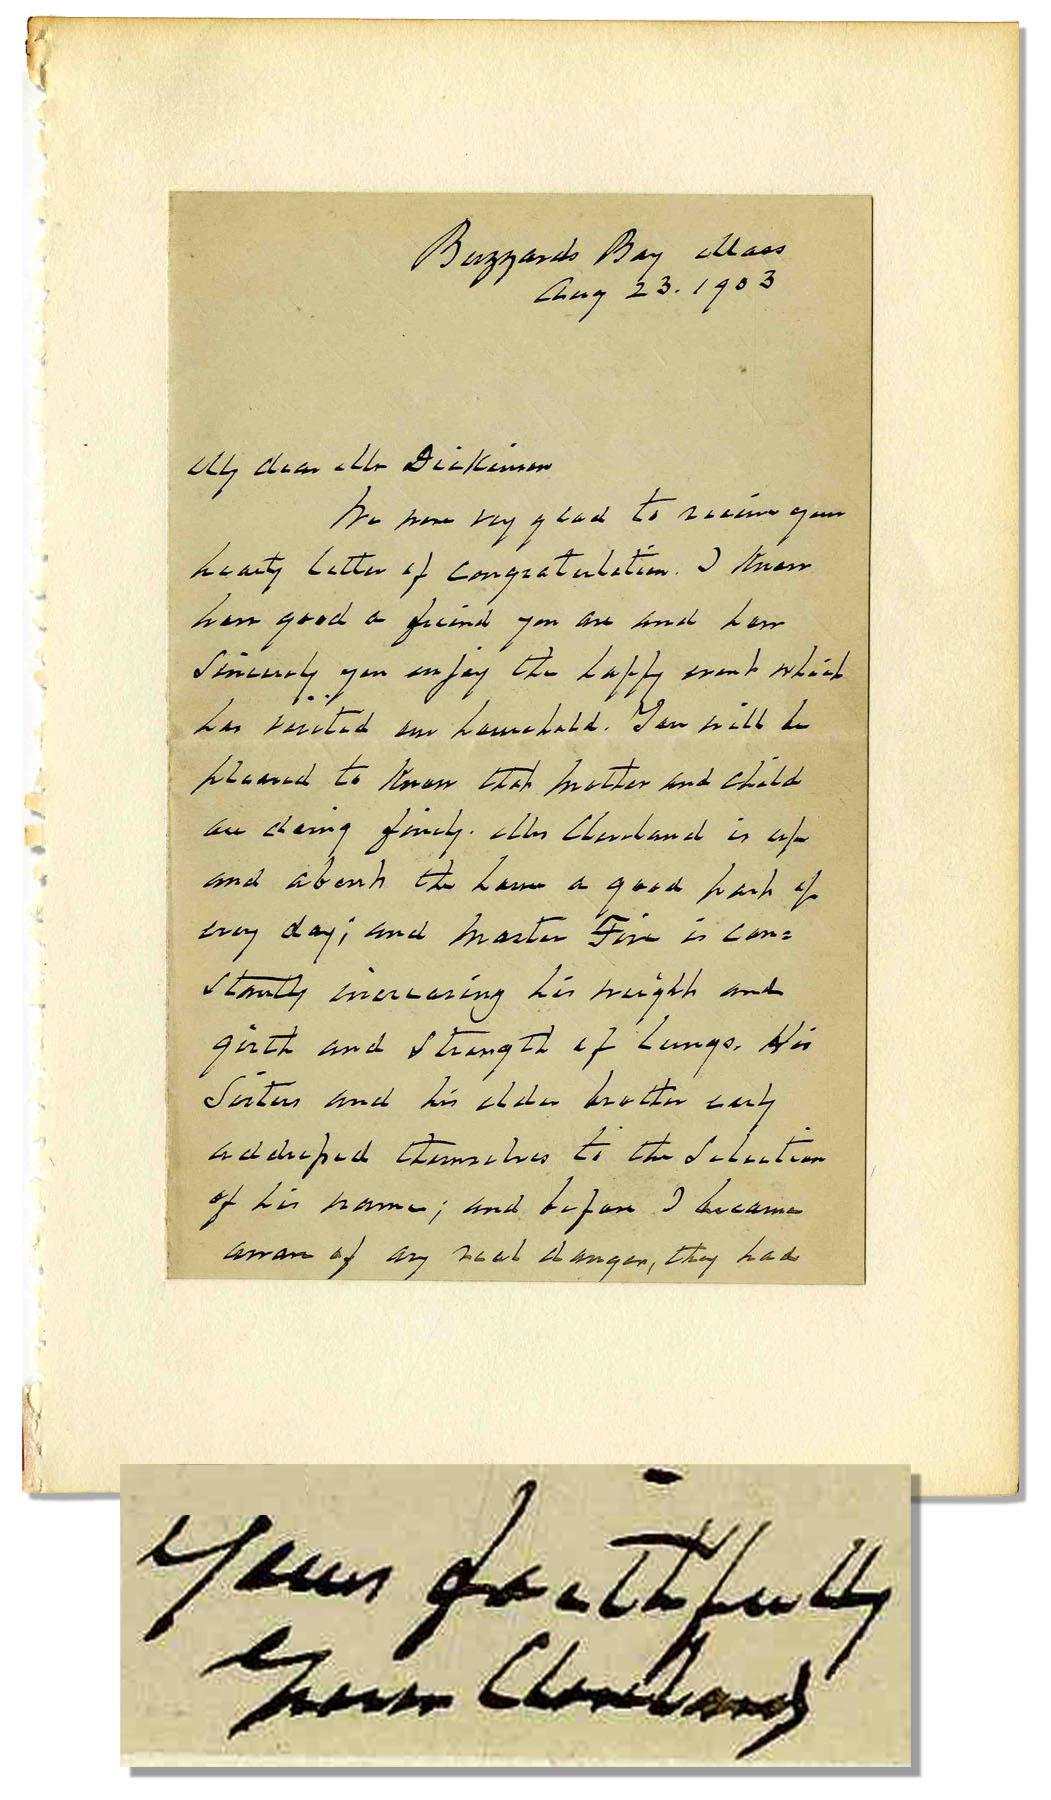 Buzzards Bay Mass
Aug 23. 1903
My dear Mr Dickinson
We were very glad to receive your
hearty letter of congratulation. I know
how good a friend you are and how
sincerely you enjoy the happy event which
has visited our household. You will be
pleased to know that mother and child
are doing finely. Mrs Cleveland is up
and about the house a good part of
every day; and Master Five is con=
stantly increasing his weight and
girth and strength of lungs. His
Sisters and his elder brother early
addressed themselves to the selection
of his name; and before I became
aware of any real danger, they had
Yours faithfully
Grover Cleveland